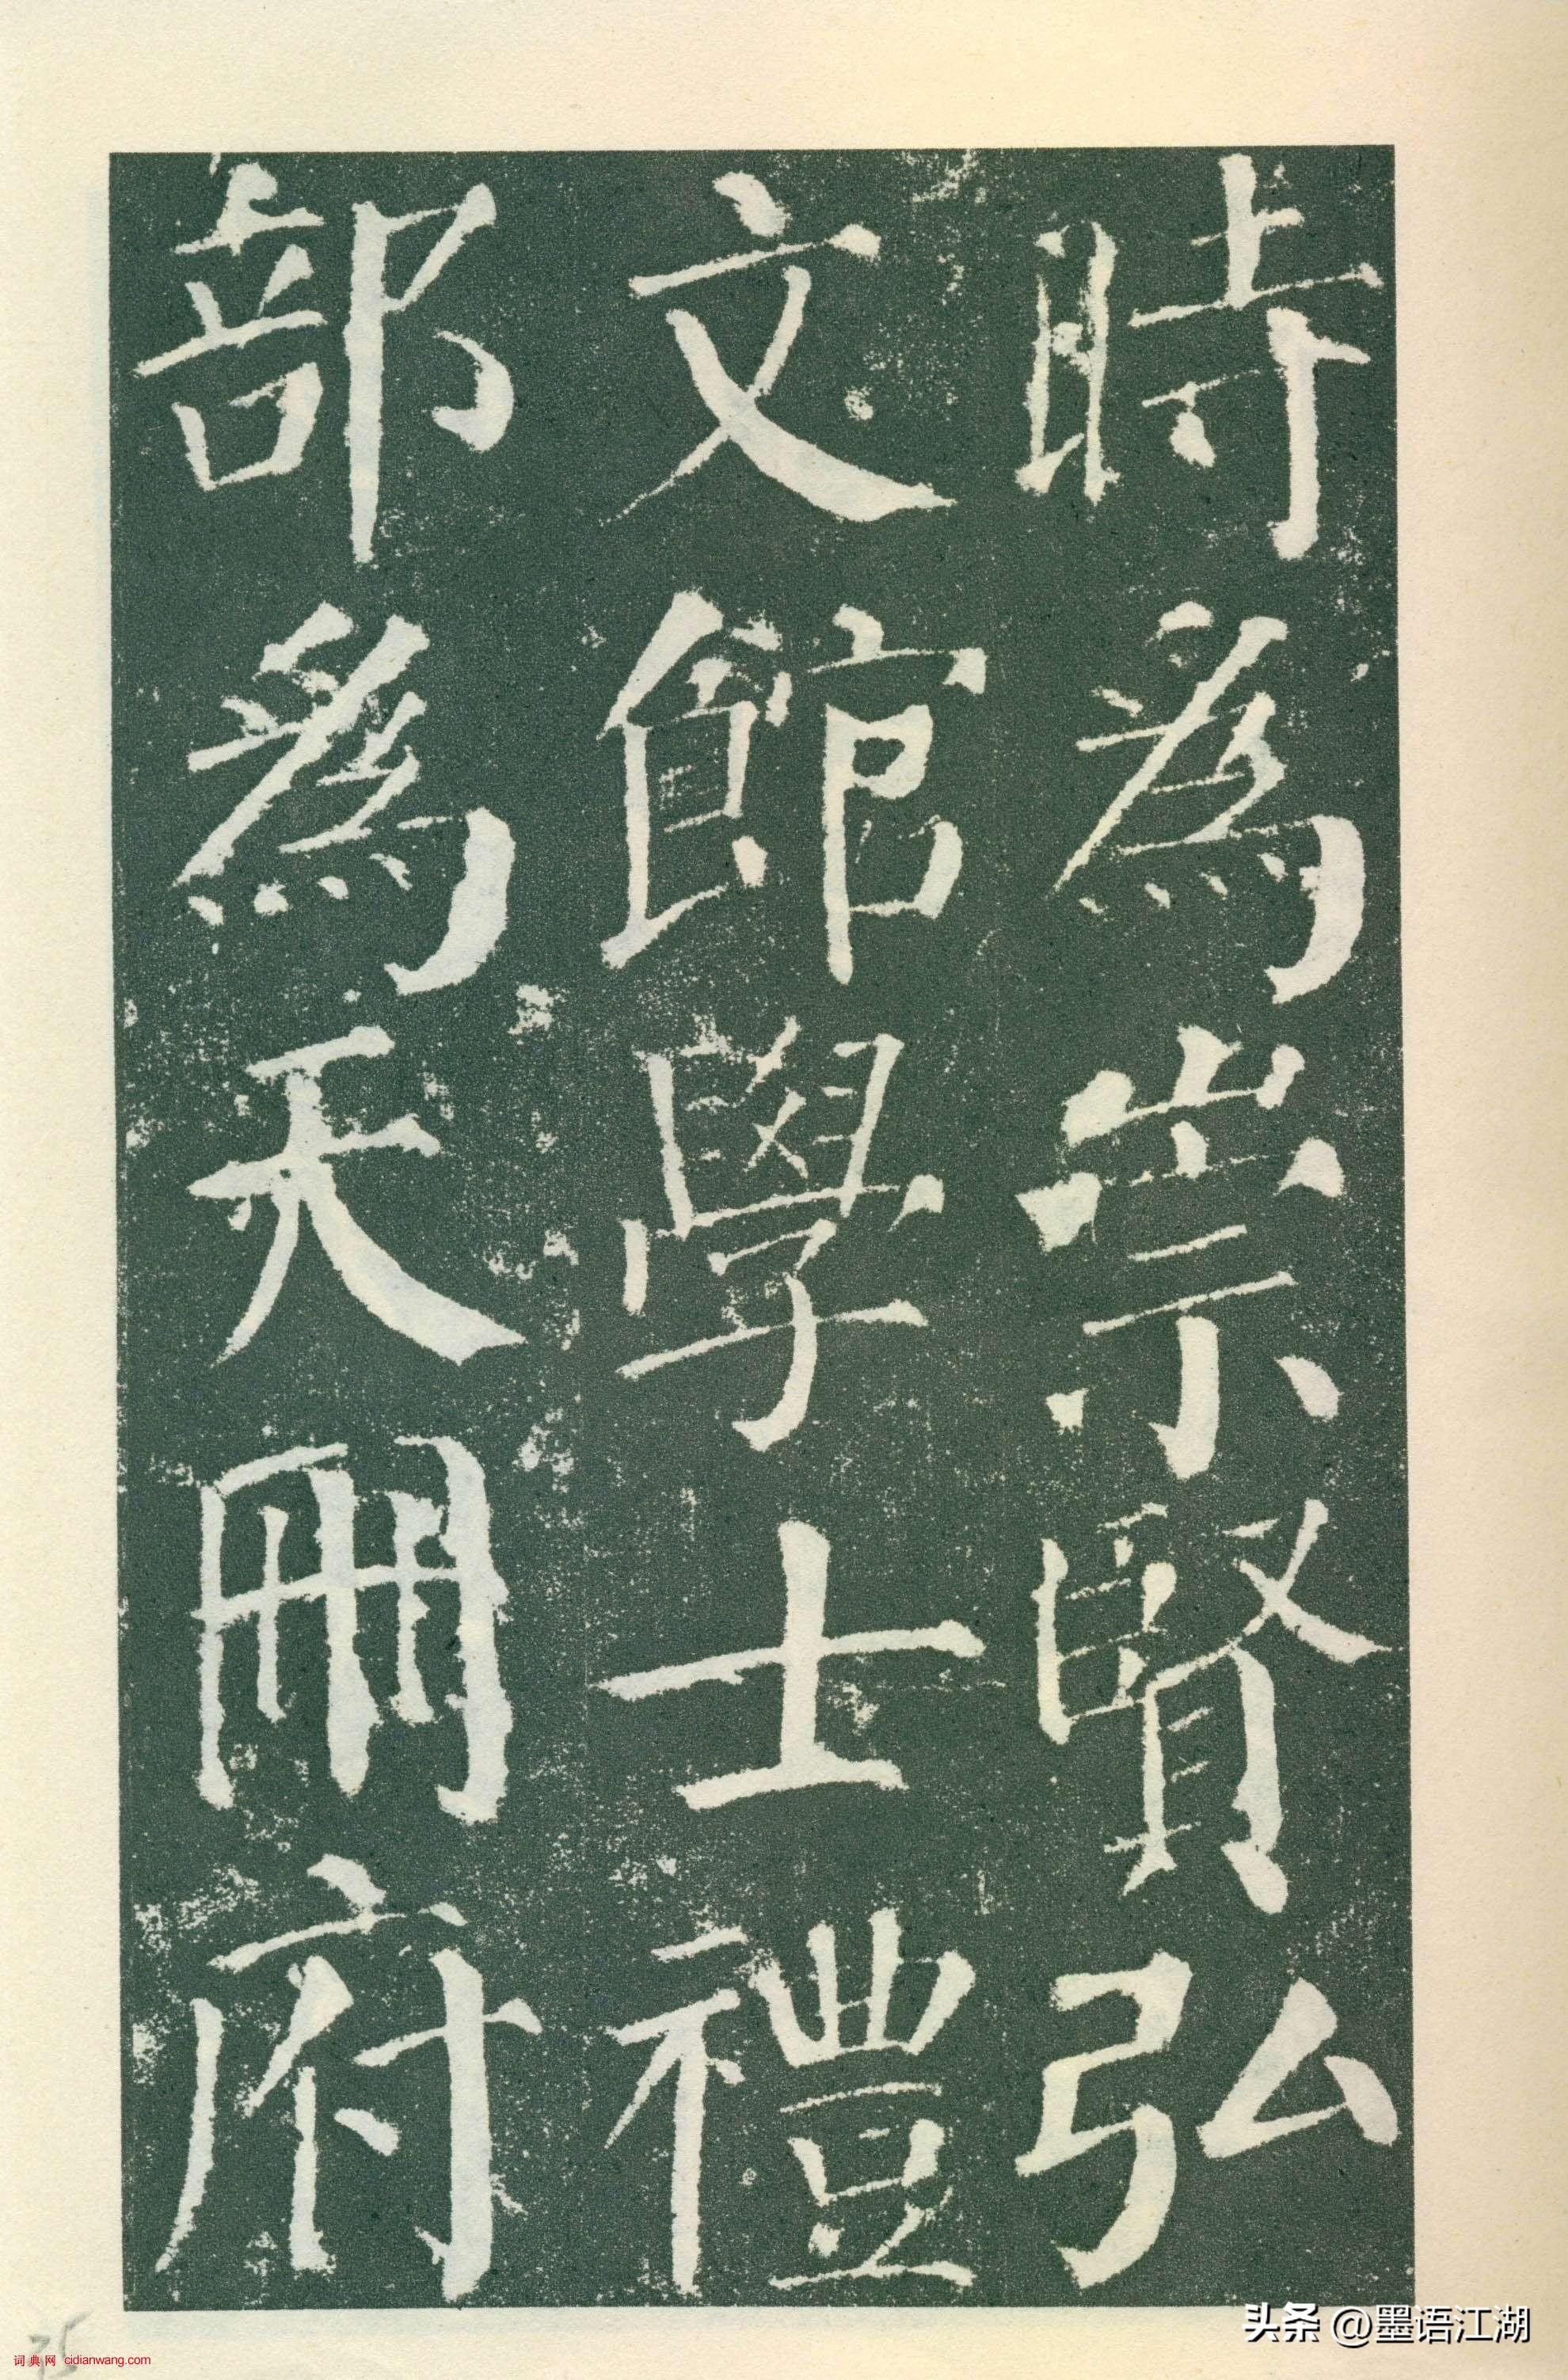 時為崇賢弘
文館學士禮
部為天冊府
头条 @墨语江湖
75
词典网 cidianwang.com